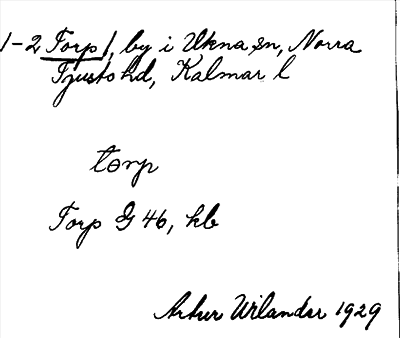 1-2 Torp, by i Ukna sn, Norra
Tjusts hd, Kalmar l
torp
Torp G 46, kb
Artur Wilander 1929